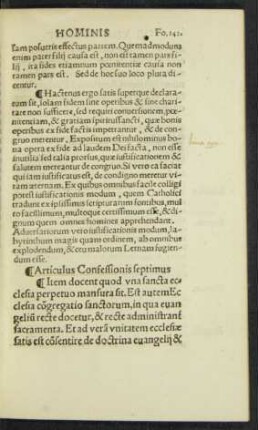 HOMINIS Fo. 142.
sam posueris effectus partem. Quemadmodum
enim pater filij causa est, non est tamen pars fi
lij, ita fides etiamnum pœnitentiæ causa non
tamen pars est. Sed de hoc suo loco plura di
centur.
¶ Hactenus ergo satis superque declara
tum sit, solam fidem sine operibus & sine charitate
non sufficere, sed requiri conuersionem, pœ
nitentiam, & gratiam spiritussancti, quæ bonis
operibus ex fide factis impetrantur, & de con
gruo merentur. Expositum est iustos minus bo
na opera ex fide ad laudem Dei facta, non esse
inutilia sed talia prorsus, quæ iustificationem &
salutem mereantur de congruo. Si vero ea faciat
qui iam iustificatus est, de condigno meretur vi
tam æternam. Ex quibus omnibus facile colligi
potest iustificationis modum, quem Catholici
tradunt ex ipsissimis scripturarum fontibus, mul
to facillimum, multoque certissimum esse, & di
gnum quem omnes homines apprehendant.
Aduersariorum vero iustificationis modum, la
byrinthum magis quam ordinem, ab omnibus
explodendum, & ceu malorum Lernam fugien
dum esse.
¶ Articulus Confessionis septimus
¶ Item docent quod vna sancta ec
clesia perpetuo mansura sit. Est autem Ec
clesia cõgregatio sanctorum, in qua euan
geliũ recte docetur, & recte administrant̃
sacramenta. Et ad verã vnitatem ecclesiæ
satis est cõsentire de doctrina euangelij &